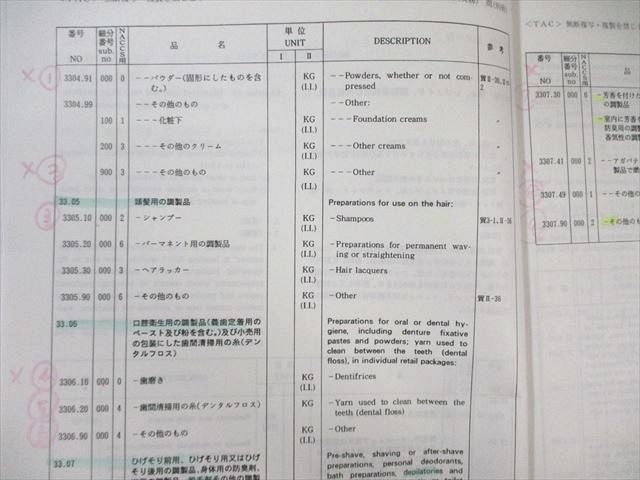 <TAC> 無断複写・複製を禁じ
番号
NO
細分
番号
sub.
no
NACCS用
品 名
単位
UNIT
I II
DESCRIPTION
参考
3304.91 000 0 --パウダー(固形にしたものを含 KG --Powders, whether or not com-
む。) (I.I.) pressed
3304.99 --その他のもの --Other:
100 1 ---化粧下 KG ---Foundation creams 〃
(I.I.)
200 3 ---その他のクリーム KG ---Other creams 〃
(I.I.)
900 3 ---その他のもの KG ---Other 〃
(I.I.)
33.05 頭髪用の調製品 Preparations for use on the hair:
3305.10 000 2 -シャンプー KG -Shampoos
(I.I.)
3305.20 000 6 -パーマネント用の調製品 KG -Preparations for permanent wav-
(I.I.) ing or straightening
3305.30 000 3 -ヘアラッカー KG -Hair lacquers
(I.I.)
3305.90 000 6 -その他のもの KG -Other 賀II-36
(I.I.)
33.06 口腔衛生用の調製品(義歯定着用の Preparations for oral or dental hy-
ペースト及び粉を含む。)及び小売用 giene, including denture fixative
の包装にした歯間清掃用の糸(デン pastes and powders; yarn used to
タルフロス) clean between the teeth (dental
floss), in individual retail packages:
3306.10 000 0 -歯磨き KG -Dentifrices
(I.I.)
3306.20 000 4 -歯間清掃用の糸(デンタルフロス) KG -Yarn used to clean between the
teeth (dental floss)
3306.90 000 4 -その他のもの KG -Other
(I.I.)
33.07 ひげそり前用、ひげそり用又はひげ Pre-shave, shaving or after-shave
そり後用の調製品、身体用の防臭剤、 preparations, personal deodorants,
bath preparations, depilatories and
番号
NO
細分
番号
sub.
no
NACCS用
3307.30 000 6 -芳香を付けた
の調製品
-室内に芳香を
防臭用の調製
香気性の調製
3307.41 000 2 --アガバテ
製品で燃
3307.49 000 1 --その他の
3307.90 000 2 -その他のも